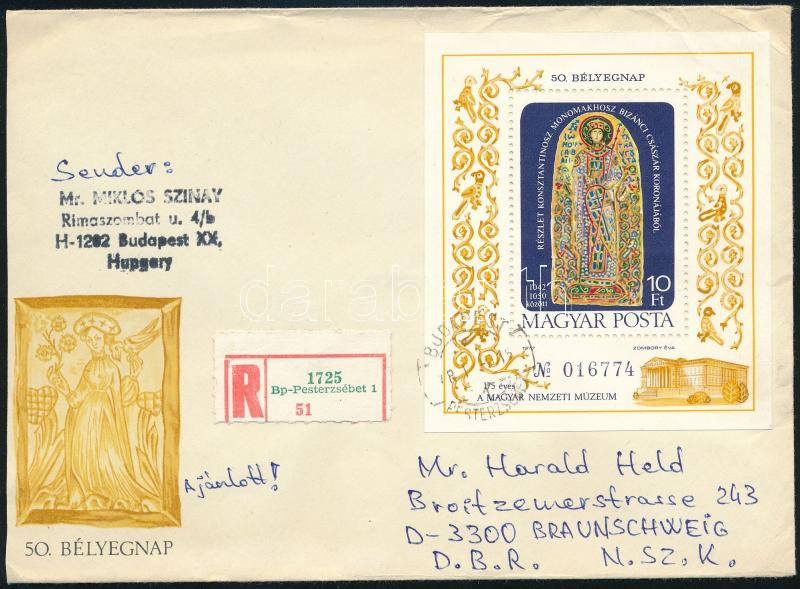 Sender:
Mr. MIKLÓS SZINAY
Rimaszombat u. 4/b
H-1202 Budapest XX,
Hungary
R
1725
Bp-Pesterzsébet 1
51
Ajánlott!
50. BÉLYEGNAP
50. BÉLYEGNAP
RÉSZLET KONSZTANTINOSZ MONOMAKHOSZ BIZÁNCI CSÁSZÁR KORONÁJÁBÓL
1042
1050
között
10
Ft
MAGYAR POSTA
ZOMBORY ÉVA
№ 016774
175 éves
A MAGYAR NEMZETI MÚZEUM
BUDAPEST
Mr. Harald Held
Broitzemerstrasse 243
D-3300 BRAUNSCHWEIG
D.B.R. N.SZ.K.